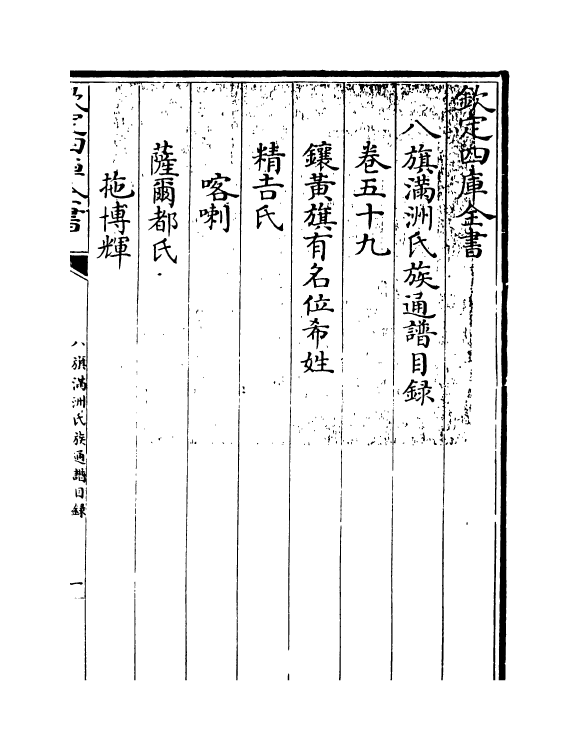 欽定四庫全書
八旗滿洲氏族通譜目録
卷五十九
鑲黃旗有名位希姓
精吉氏
喀喇
薩爾都氏
拖博輝
欽定四庫全書
八旗滿洲氏族通譜目録
一